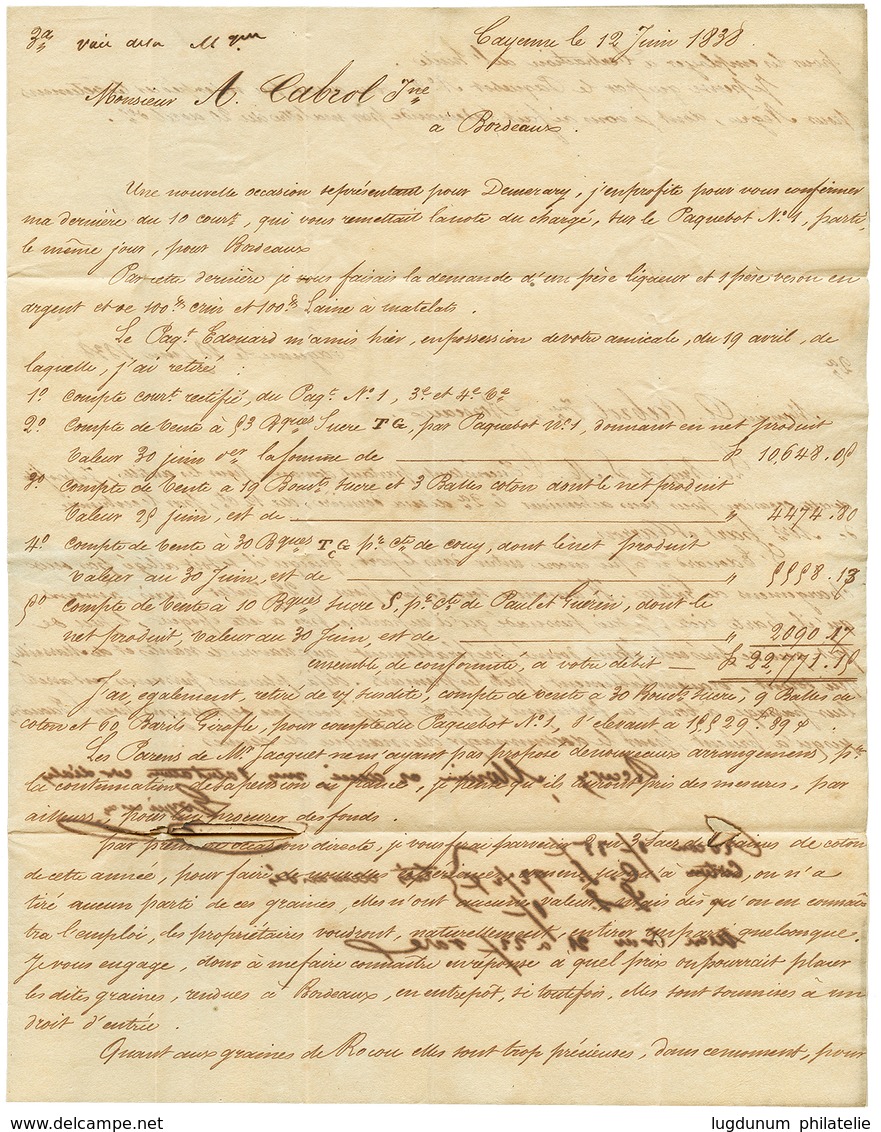 3a voie de la Mque
Cayenne le 12 Juin 1838
Monsieur A. Cabrol Jne
a Bordeaux.
Une nouvelle occasion se présentant pour Demerary, j'en profite pour vous confirmer
ma dernière du 10 court, qui vous remettait la note du chargé, sur le Paquebot No. 1, parti,
le même jour, pour Bordeaux
Par cette dernière je vous faisais la demande d'un pèse liqueur et 1 pèse vesou en
argent et de 100 lb crin et 100 lb Laine à matelats.
Le Paqt. Edouard m'a mis hier, en possession de votre amicale, du 19 avril, de
laquelle, j'ai retiré :
1o compte court rectifié, du Paqt. No. 1, 3e et 4e Ve
2o Compte de Vente à 53 Bques Sucre TG, par Paquebot No. 1, donnant en net produit
Valeur 30 juin la somme de 10,648.05
3o Compte de Vente à 19 Bouts. sucre et 3 Balles coton dont le net produit
Valeur 25 juin, est de " 4474.80
4o Compte de Vente à 30 Bques TCG pr. cte. de couy, dont le net produit
Valeur au 30 Juin, est de " 5558.13
5o Compte de Vente à 10 Bques sucre S, pr. cte. de Paul et Guerin, dont le
net produit, Valeur au 30 Juin, est de " 2090.17
ensemble de conformité, à votre débit 22,771.15
J'ai, également, retiré de vj susdite, compte de vente à 30 Bouts. sucre, 9 Balles de
coton et 60 Barils Girofle, pour compte du Paquebot No. 1, s'élevant à 15529 89
Les Parens de Mr. Jacquet ne m'ayant pas proposé de nouveaux arrangemens, pr.
la continuation de sa pension en france, je pense qu'ils auront pris des mesures, par
ailleurs, pour lui procurer des fonds.
par occasion directe, je vous ferai parvenir 2 ou 3 Sacs de graines de coton
de cette année, pour faire de nouveaux jusqu'à on n'a
tiré aucun parti de ces graines, elles n'ont aucune valeur, mais dès qu'on en connaî-
tra l'emploi, les propriétaires voudront, naturellement, en tirer un parti quelconque.
Je vous engage, donc à me faire connaître en réponse à quel prix on pourrait placer
les dites graines, rendues à Bordeaux, en entrepôt, si toutefois, elles sont soumises à un
droit d'entrée.
Quant aux graines de Rocou elles sont trop précieuses, dans ce moment, pour
www.delcampe.net
lugdunum philatelie